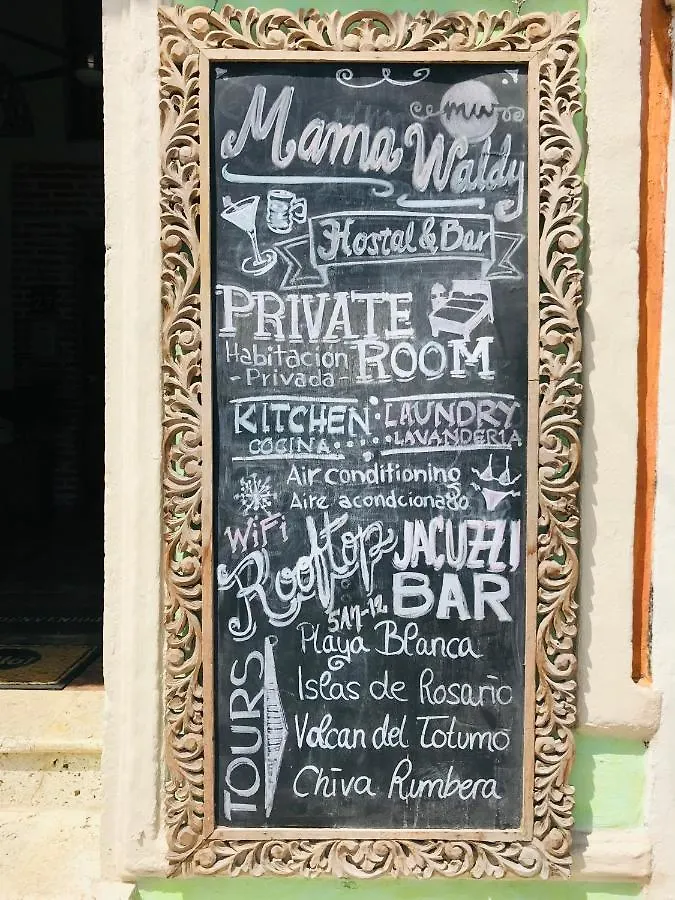 mw
Mama Waldy
Hostal & Bar
PRIVATE
Habitación
- Privada -
ROOM
KITCHEN
COCINA
LAUNDRY
LAVANDERIA
Air conditioning
Aire acondcionado
WiFi
Rooftop
JACUZZI
BAR
5AM-12
TOURS
Playa Blanca
Islas de Rosario
Volcan del Totumo
Chiva Rumbera